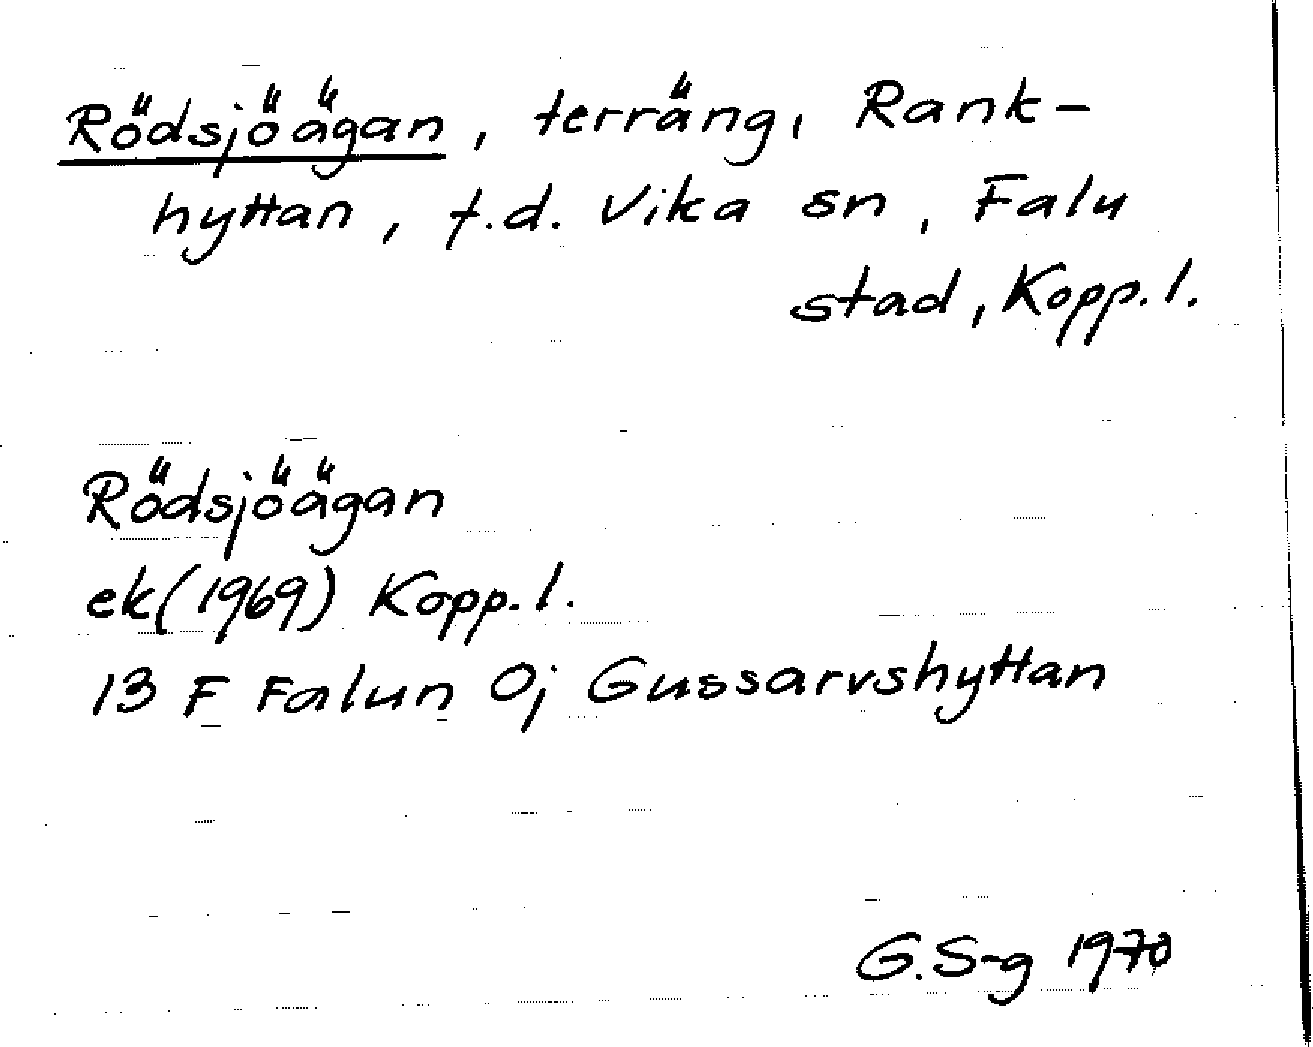 Rödsjöägan, terräng, Rank-
hyttan, f.d. Vika sn, Falu
stad, Kopp. l.
Rödsjöägan
ek (1969) Kopp. l.
13 F Falun 0j Gussarvshyttan
G. S-g 1970